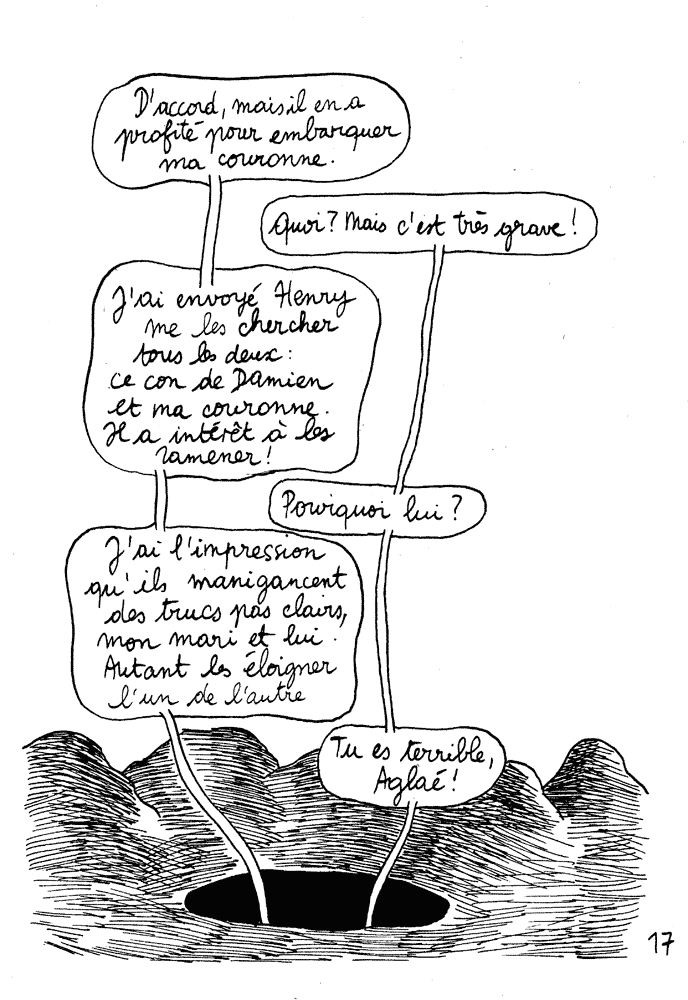 D'accord, mais il en a
profité pour embarquer
ma couronne.
Quoi? Mais c'est très grave!
J'ai envoyé Henry
me les chercher
tous les deux:
ce con de Damien
et ma couronne.
Il a intérêt à les
ramener!
Pourquoi lui?
J'ai l'impression
qu'ils manigancent
des trucs pas clairs,
mon mari et lui.
Autant les éloigner
l'un de l'autre
Tu es terrible,
Aglaé!
17